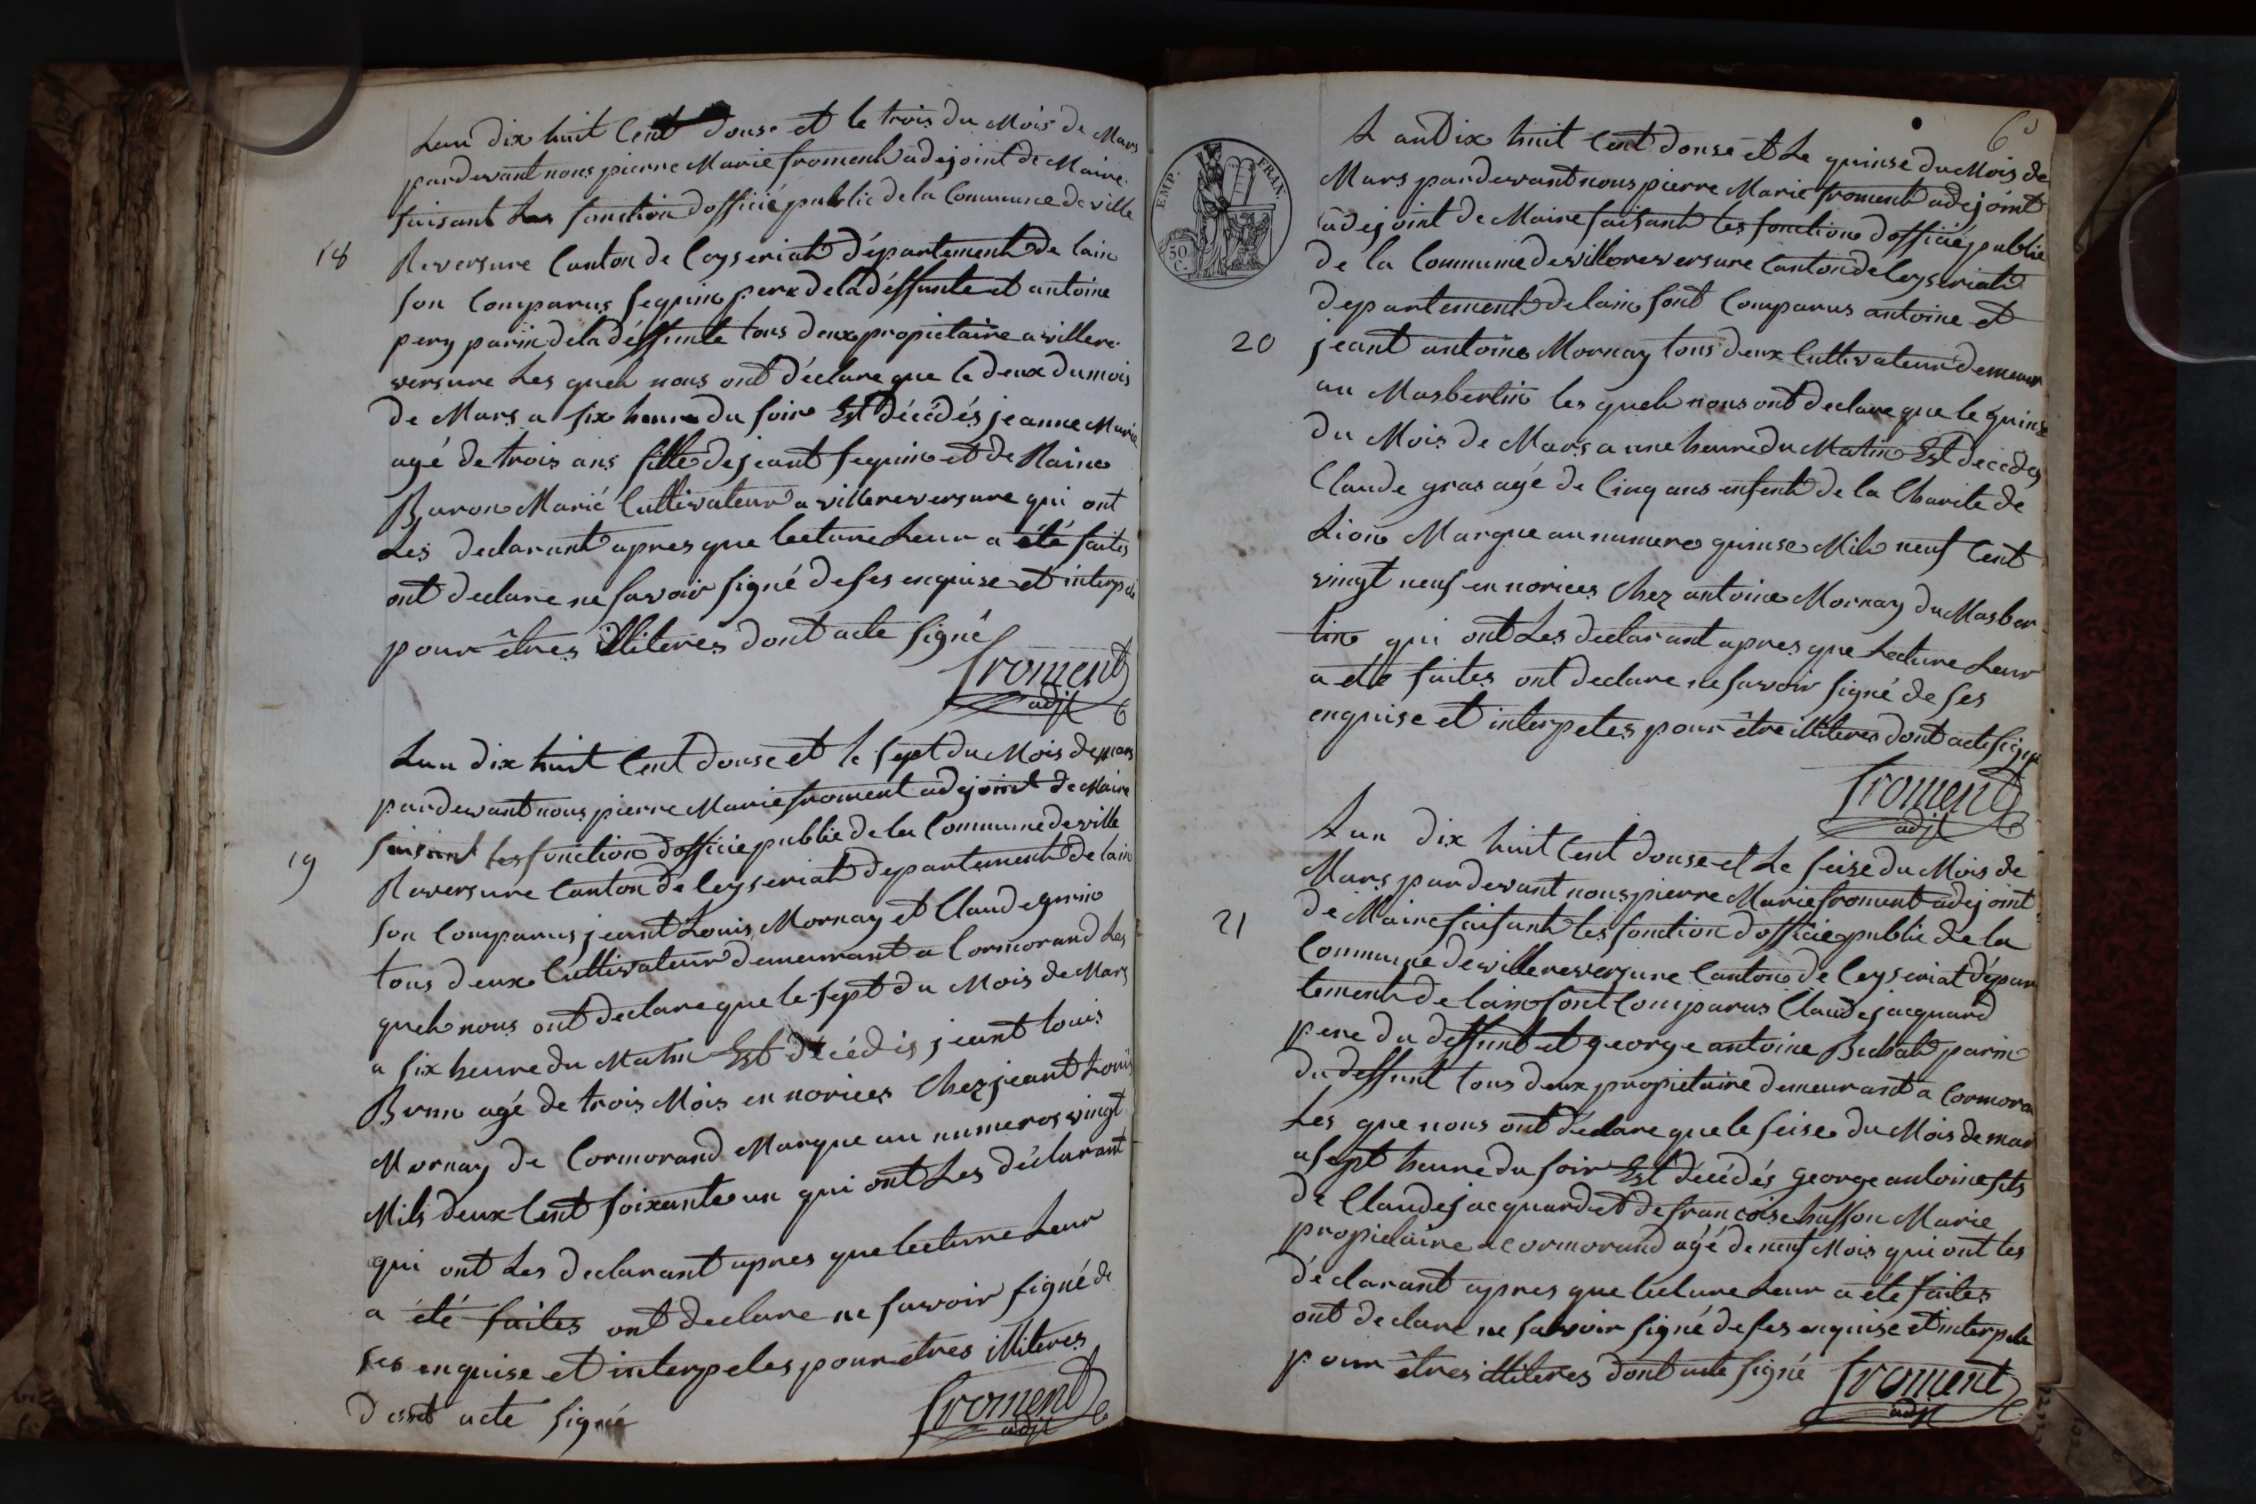 Lan dix huit Cent douse et le trois du Mois de Mars
pardevant nous pierre Marie froment adejoint de Maire
faisant Les fonction dofficié public de la Commune de ville
18
Reversure Canton de Ceyseriat département de lain
son Comparus seguin pere de la déffunte et antoine
pery parin de la déffunte tous deux propietaire a villere
versure Les queh nous ont déclare que le deux du mois
de Mars a six heure du soir Est décédés jeanne Marie
agé de trois ans fille de jeant seguin et de Raine
Buron Marié Cultivateur a villereversure qui ont
Les declarant apres que lecture Leur a été faites
ont declare ne savoir signé de ses enquise et interpelé
pour êtres illiteres dont acte signé
froment
adjt
Lan dix huit Cent douse et le sept du Mois de mars
pardevant nous pierre Marie froment adejoint de Maire
19
faisant les fonction dofficié public de la Commune de ville
Reversure Canton de Ceyseriat departement de lain
son Comparus jeant Louis Mornay et Claude
tous deux Cultivateur demeurant a Cormorand Les
queh nous ont declare que le sept du Mois de Mars
a six heure du Matin Est décédés jeant louis
Brun agé de trois Mois en norices Chez jeant Louis
Mornay de Cormorand Marque au numeros vingt
Mils deux Cent soixante un qui ont Les déclarant
qui ont Les declarant apres que lecture Leur
a été faites ont declare ne savoir signé de
ses enquise et interpeles pour etres illiteres
dont acte signé
froment
adjt
EMP. FRAN.
50
C.
60
L an Dix huit Cent douse et Le quinse du Mois de
Mars pardevant nous pierre Marie froment adejoint
adejoint de Maire faisant les fonction dofficié public
de la Commune de villereversure Canton de Ceyseriat
departement de lain sont Comparus antoine et
20
jeant antoine Mornay tous deux Cultivateur demeur
au Masbertin les queh nous ont declare que le quinse
du Mois de Mars a une heure du Matin Est decedes
Claude gras agé de Cinq ans enfent de la Charite de
Lion Marque au numero quinse Mih neuf Cent
vingt neuf en norices Chez antoine Mornay du Masber
tin qui ont Les declarant apres que Lecture Leur
a été faites ont declare ne savoir signé de ses
enquise et interpetes pour être illiteres dont acte signé
froment
adjt
Lan dix huit Cent douse et Le seize du Mois de
Mars pardevant nous pierre Marie froment adejoint
21
de Maire faisant les fonction dofficié public de la
Commune de villereversure Canton de Ceyseriat dépar
tement de lain sont Comparus Claude jacquard
pere du deffunt et george antoine Bichat parin
du deffunt tous deux propietaire demeurant a Cormoran
Les que nous ont déclare que le seise du Mois de mar
a sept heure du soir Est décédés george antoine fils
de Claude jacquard et de francoise husson Marie
propietaire a cormorand agé de neuf Mois qui ont les
déclarant apres que lecture Leur a été faites
ont declare ne savoir signé de ses enquise et interpele
pour êtres illiteres dont acte signé
froment
adjt